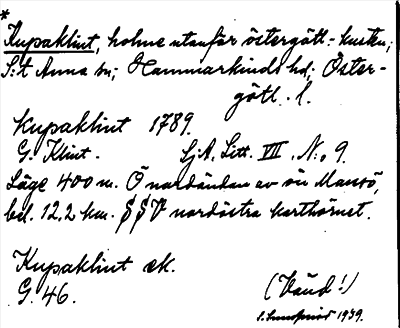 *
Kupaklint, holme utanför östergötl.-kusten;
S:t Anna sn; Hammarkinds hd; Öster-
götl. l.
Kupaklint 1789.
G. Klint. SjA. Litt. VII. N:o 9.
Läge 400 m. Ö nordändan av ön Mansö,
bel. 12,2 km. SSV nordöstra karthörnet.
Kupaklint ek.
G. 46.
(Vänd!)
1939.